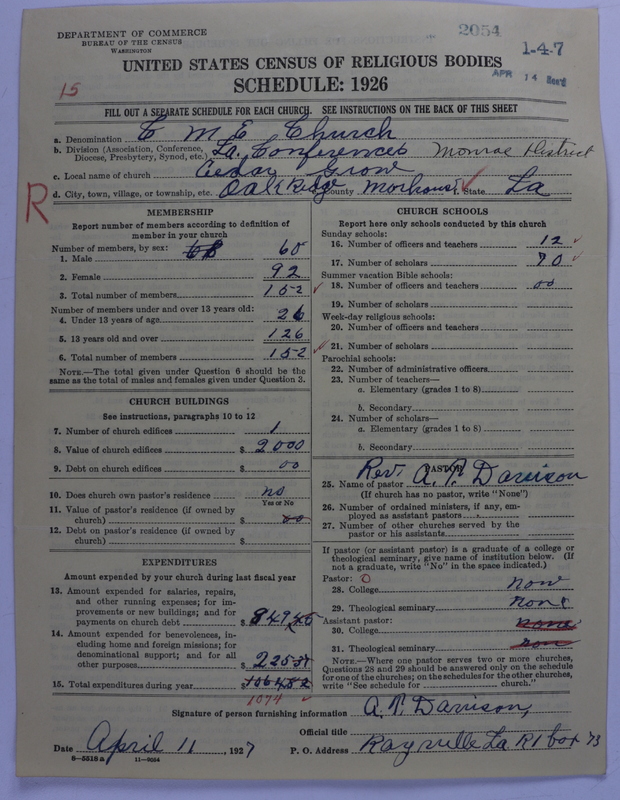 DEPARTMENT OF COMMERCE
BUREAU OF THE CENSUS
WASHINGTON
2054
1-4-7
APR 14
UNITED STATES CENSUS OF RELIGIOUS BODIES
15
SCHEDULE: 1926
FILL OUT A SEPARATE SCHEDULE FOR EACH CHURCH. SEE INSTRUCTIONS ON THE BACK OF THIS SHEET
a. Denomination C M E Church
b. Division (Association, Conference, Diocese, Presbytery, Synod, etc.) La. Conferences Monroe District
c. Local name of church Cedar Grow
R
d. City, town, village, or township, etc. Oak Ridge County Morhouse f. State La
MEMBERSHIP
Report number of members according to definition of
member in your church
Number of members, by sex: 68
1. Male 60
2. Female 92
3. Total number of members 152
Number of members under and over 13 years old:
4. Under 13 years of age 26
5. 13 years old and over 126
6. Total number of members 152
NOTE.—The total given under Question 6 should be
same as the total of males and females given under Question 3.
CHURCH BUILDINGS
See instructions, paragraphs 10 to 12
7. Number of church edifices 1
8. Value of church edifices $ 2000
9. Debt on church edifices $ 00
10. Does church own pastor's residence no
Yes or No
11. Value of pastor's residence (if owned by
church) $ 00
12. Debt on pastor's residence (if owned by
church) $
EXPENDITURES
Amount expended by your church during last fiscal year
13. Amount expended for salaries, repairs,
and other running expenses; for im-
provements or new buildings; and for
payments on church debt $
14. Amount expended for benevolences, in-
cluding home and foreign missions; for
denominational support; and for all
other purposes $
15. Total expenditures during year $
1074
CHURCH SCHOOLS
Report here only schools conducted by this church
Sunday schools:
16. Number of officers and teachers 12
17. Number of scholars 70
Summer vacation Bible schools:
18. Number of officers and teachers 00
19. Number of scholars
Week-day religious schools:
20. Number of officers and teachers
21. Number of scholars
Parochial schools:
22. Number of administrative officers
23. Number of teachers—
a. Elementary (grades 1 to 8)
b. Secondary
24. Number of scholars—
a. Elementary (grades 1 to 8)
b. Secondary
PASTOR
25. Name of pastor Rev. A. P. Davison
(If church has no pastor, write "None")
26. Number of ordained ministers, if any, em-
ployed as assistant pastors
27. Number of other churches served by the
pastor or his assistants
If pastor (or assistant pastor) is a graduate of a college or
theological seminary, give name of institution below. (If
not a graduate, write "No" in the space indicated.)
Pastor: 0
28. College now
29. Theological seminary none
Assistant pastor:
30. College none
31. Theological seminary non
NOTE.—Where one pastor serves two or more churches,
Questions 28 and 29 should be answered only on the schedule
for one of the churches; on the schedules for the other churches,
write "See schedule for church."
Signature of person furnishing information A. P. Davison,
Official title
Date April 11, 1927 P. O. Address Rayville La R1 box 73
8—5518a 11—9084